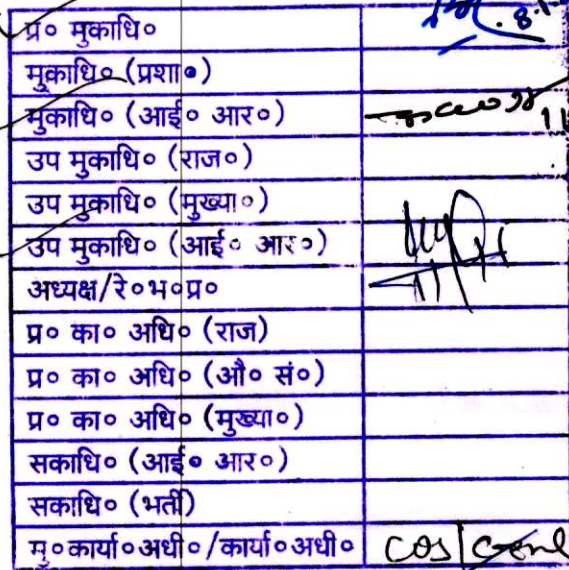 प्र० मुकाधि० 8.1
मुकाधि० (प्रशा०)
मुकाधि० (आई० आर०) 11
उप मुकाधि० (राज०)
उप मुकाधि० (मुख्या०)
उप मुकाधि० (आई० आर०)
अध्यक्ष/रे०भ०प्र०
प्र० का० अधि० (राज)
प्र० का० अधि० (औ० सं०)
प्र० का० अधि० (मुख्या०)
सकाधि० (आई० आर०)
सकाधि० (भर्ती)
मु०कार्या०अधी०/कार्या०अधी० COS/